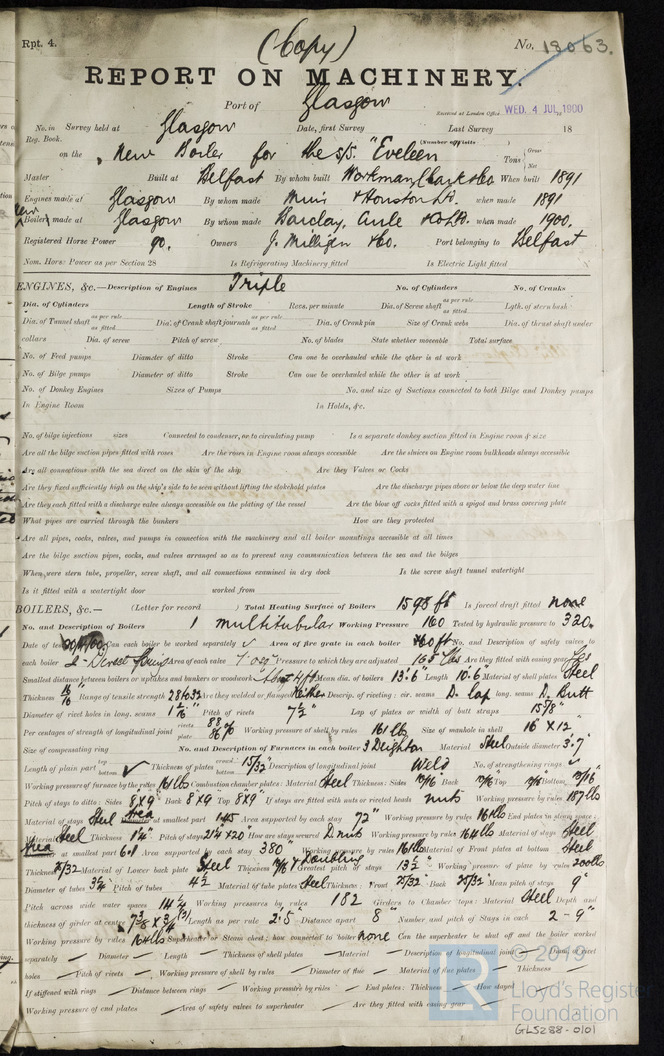 Rpt. 4. (Copy) No. 18063.
REPORT ON MACHINERY.
Port of Glasgow
Received at London Office WED. 4 JUL. 1900
No. in Survey held at Glasgow Date, first Survey Last Survey 18
Reg. Book. (Number of Visits)
on the New Boiler for the s/s. "Eveleen Tons Gross Net
Master Built at Belfast By whom built Workman Clark & Co When built 1891
Engines made at Glasgow By whom made Muir & Houston Ld. when made 1891
New Boilers made at Glasgow By whom made Barclay, Curle & Co Ld. when made 1900.
Registered Horse Power 90. Owners J. Milligen & Co. Port belonging to Belfast
Nom. Horse Power as per Section 28 Is Refrigerating Machinery fitted Is Electric Light fitted
ENGINES, &c.—Description of Engines Triple No. of Cylinders No. of Cranks
Dia. of Cylinders Length of Stroke Revs. per minute Dia. of Screw shaft as per rule as fitted Lgth. of stern bush
Dia. of Tunnel shaft as per rule as fitted Dia. of Crank shaft journals as per rule as fitted Dia. of Crank pin Size of Crank webs Dia. of thrust shaft under
collars Dia. of screw Pitch of screw No. of blades State whether moveable Total surface
No. of Feed pumps Diameter of ditto Stroke Can one be overhauled while the other is at work
No. of Bilge pumps Diameter of ditto Stroke Can one be overhauled while the other is at work
No. of Donkey Engines Sizes of Pumps No. and size of Suctions connected to both Bilge and Donkey pumps
In Engine Room In Holds, &c.
No. of bilge injections sizes Connected to condenser, or to circulating pump Is a separate donkey suction fitted in Engine room & size
Are all the bilge suction pipes fitted with roses Are the roses in Engine room always accessible Are the sluices on Engine room bulkheads always accessible
Are all connections with the sea direct on the skin of the ship Are they Valves or Cocks
Are they fixed sufficiently high on the ship's side to be seen without lifting the stokehold plates Are the discharge pipes above or below the deep water line
Are they each fitted with a discharge valve always accessible on the plating of the vessel Are the blow off cocks fitted with a spigot and brass covering plate
What pipes are carried through the bunkers How are they protected
Are all pipes, cocks, valves, and pumps in connection with the machinery and all boiler mountings accessible at all times
Are the bilge suction pipes, cocks, and valves arranged so as to prevent any communication between the sea and the bilges
When were stern tube, propeller, screw shaft, and all connections examined in dry dock Is the screw shaft tunnel watertight
Is it fitted with a watertight door worked from
BOILERS, &c.— (Letter for record ) Total Heating Surface of Boilers 1598 ft Is forced draft fitted none
No. and Description of Boilers 1 multitubular Working Pressure 160 Tested by hydraulic pressure to 320.
Date of test Can each boiler be worked separately ✓ Area of fire grate in each boiler No. and Description of safety valves to
each boiler 2 Direct Spring Area of each valve Pressure to which they are adjusted 165 lbs Are they fitted with easing gear Yes
Smallest distance between boilers or uptakes and bunkers or woodwork About 4 ft Mean dia. of boilers 13'.6" Length 10'.6" Material of shell plates Steel
Thickness Range of tensile strength 28 to 32 Are they welded or flanged Neither Descrip. of riveting: cir. seams D. Lap long. seams D. Butt
Diameter of rivet holes in long. seams Pitch of rivets 7½" Lap of plates or width of butt straps 15⅞"
Per centages of strength of longitudinal joint rivets 88 plate 86% Working pressure of shell by rules 161 lb Size of manhole in shell 16" x 12"
Size of compensating ring No. and Description of Furnaces in each boiler 3 Deighton Material Steel Outside diameter 3'.7"
Length of plain part top bottom ✓ Thickness of plates crown bottom 15/32" Description of longitudinal joint Weld No. of strengthening rings ✓
Working pressure of furnace by the rules 161 lb Combustion chamber plates: Material Steel Thickness: Sides Back Top Bottom
Pitch of stays to ditto: Sides 8 x 9" Back 8 x 9 Top 8 x 9" If stays are fitted with nuts or riveted heads nuts Working pressure by rules 187 lbs
Material of stays Steel Area at smallest part 1.45 Area supported by each stay 72" Working pressure by rules 161 lb End plates in steam space:
Material Steel Thickness Pitch of stays 21¼ x 20" How are stays secured D nuts Working pressure by rules 164 lb Material of stays Steel
Area at smallest part Area supported by each stay 380" Working pressure by rules 161 lb Material of Front plates at bottom Steel
Thickness 25/32 Material of Lower back plate Steel Thickness & Doubling Greatest pitch of stays 13½" Working pressure of plate by rules 200 lb
Diameter of tubes 3¼" Pitch of tubes 4½ Material of tube plates Steel Thickness: Front 25/32" Back 25/32" Mean pitch of stays 9"
Pitch across wide water spaces 14¼ Working pressures by rules 182 Girders to Chamber tops: Material Steel Depth and
thickness of girder at centre Length as per rule 2'.5" Distance apart 8" Number and pitch of Stays in each 2 - 9"
Working pressure by rules 164 lb Superheater or Steam chest; how connected to boiler none Can the superheater be shut off and the boiler worked
separately — Diameter — Length — Thickness of shell plates — Material — Description of longitudinal joint — Diam. of rivet
holes — Pitch of rivets — Working pressure of shell by rules — Diameter of flue — Material of flue plates — Thickness —
If stiffened with rings — Distance between rings — Working pressure by rules — End plates: Thickness — How stayed —
Working pressure of end plates — Area of safety valves to superheater — Are they fitted with easing gear —
© 2019
Lloyd's Register
Foundation
GLS288-0101